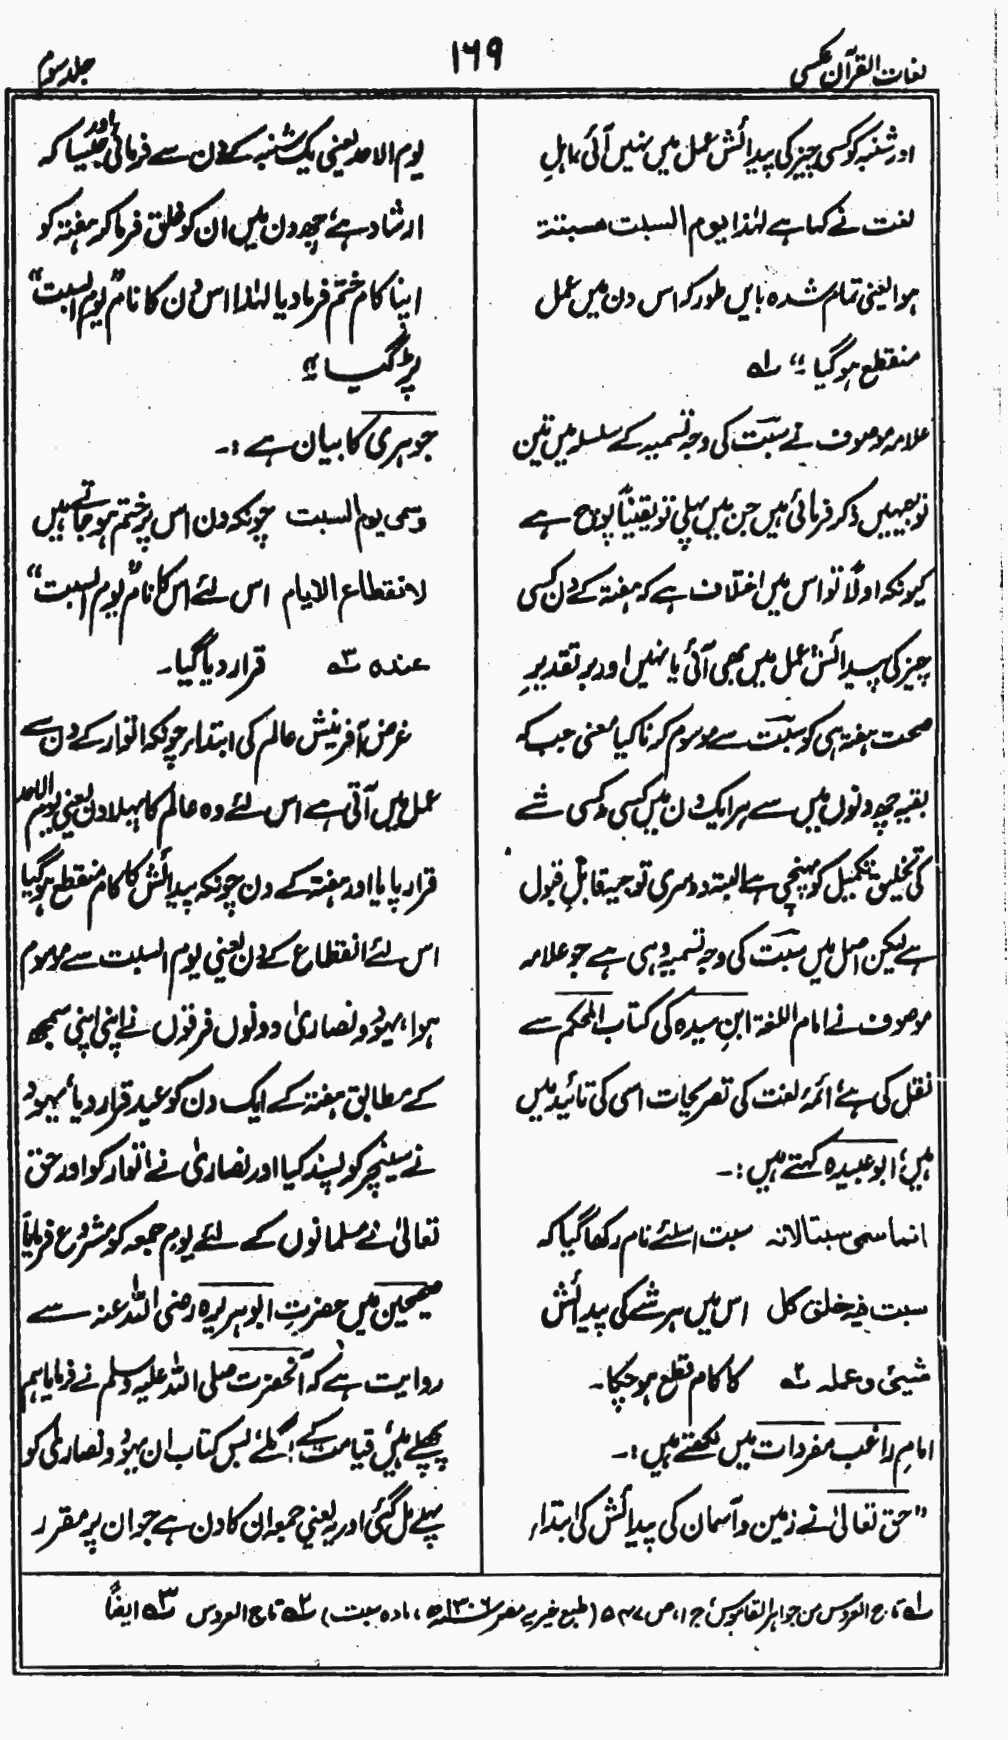 لغات القرآن عکسی
۱۶۹
جلد سوم
اور شنبہ کو کسی چیز کی پیدائش عمل میں نہیں آئی، اہلِ
لغت نے کہا ہے لہٰذا یوم السبت منسبتة
ہوا یعنی تمام شدہ بایں طور کہ اس دن میں عمل
منقطع ہو گیا ؎۱
علامہ موصوف نے سبت کی وجہ تسمیہ کے سلسلہ میں تین
توجیہیں ذکر فرمائی ہیں جن میں پہلی تو یقیناً پوچ ہے
کیونکہ اولاً تو اس میں اختلاف ہے کہ ہفتہ کے دن کسی
چیز کی پیدائش عمل میں بھی آئی یا نہیں اور بر تقدیرِ
صحت ہفتہ ہی کو سبت سے موسوم کرنا کیا معنی جب کہ
بقیہ چھ دنوں میں سے ہر ایک دن میں کسی نہ کسی شے
کی تخلیق تکمیل کو پہنچی ہے البتہ دوسری توجیہ قابلِ قبول
ہے لیکن اصل میں سبت کی وجہ تسمیہ وہی ہے جو علامہ
موصوف نے امام اللغۃ ابنِ سیدہ کی کتاب المحکم سے
نقل کی ہے، ائمۂ لغت کی تصریحات اسی کی تائید میں
ہیں، ابو عبیدہ کہتے ہیں :۔
انما سمی سبتا لانہ سبت اسلئے نام رکھا گیا کہ
سبت فیہ خلق کل اس میں ہر شے کی پیدائش
شیئی وعملہ ؎۲ کا کام قطع ہو چکا۔
امامِ راغب مفردات میں لکھتے ہیں :۔
"حق تعالیٰ نے زمین و آسمان کی پیدائش کی ابتداء
یوم الاحد یعنی یک شنبہ کے دن سے فرمائی اور جیسا کہ
ارشاد ہے، چھ دن میں ان کو خلق فرما کر ہفتہ کو
اپنا کام ختم فرما دیا لہٰذا اس دن کا نام "یوم السبت"
پڑ گیا"
جوہری کا بیان ہے :۔
وسمی یوم السبت چونکہ دن اس پر ختم ہو جاتے ہیں
لانقطاع الایام اس لئے اس کا نام "یوم السبت"
عندہ ؎۳ قرار دیا گیا۔
غرض آفرینش عالم کی ابتداء چونکہ اتوار کے دن سے
عمل میں آتی ہے اس لئے وہ عالم کا پہلا دن یعنی یوم الاحد
قرار پایا اور ہفتہ کے دن چونکہ پیدائش کا کام منقطع ہو گیا
اس لئے انقطاع کے دن یعنی یوم السبت سے موسوم
ہوا، یہود و نصاریٰ دونوں فرقوں نے اپنی اپنی سمجھ
کے مطابق ہفتہ کے ایک دن کو عید قرار دیا، یہود
نے سینچر کو پسند کیا اور نصاریٰ نے اتوار کو اور حق
تعالیٰ نے مسلمانوں کے لئے یوم جمعہ کو مشروع فرمایا
صحیحین میں حضرت ابو ہریرہ رضی اللہ عنہ سے
روایت ہے کہ آنحضرت صلی اللہ علیہ وسلم نے فرمایا ہم
پچھلے ہیں، قیامت کے اگلے بس کتاب ان یہود و نصاریٰ کو
پہلے مل گئی اور یہ یعنی جمعہ ان کا دن ہے جو ان پر مقرر
؎۱ تاج العروس من جواہر القاموس، ج ۱، ص ۵۴۷ (طبع خیریہ مصر سنہ ۱۳۰۶ھ، مادہ سبت) ؎۲ تاج العروس ؎۳ ایضاً